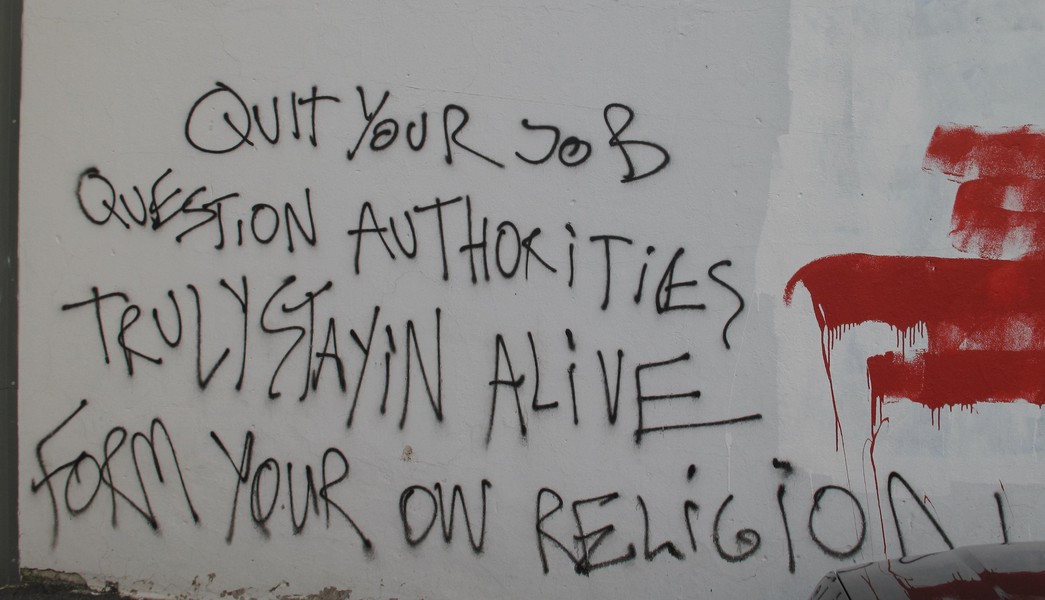 QUIT YOUR JOB
QUESTION AUTHORITIES
TRULY STAYIN ALIVE
FORM YOUR OW RELIGION